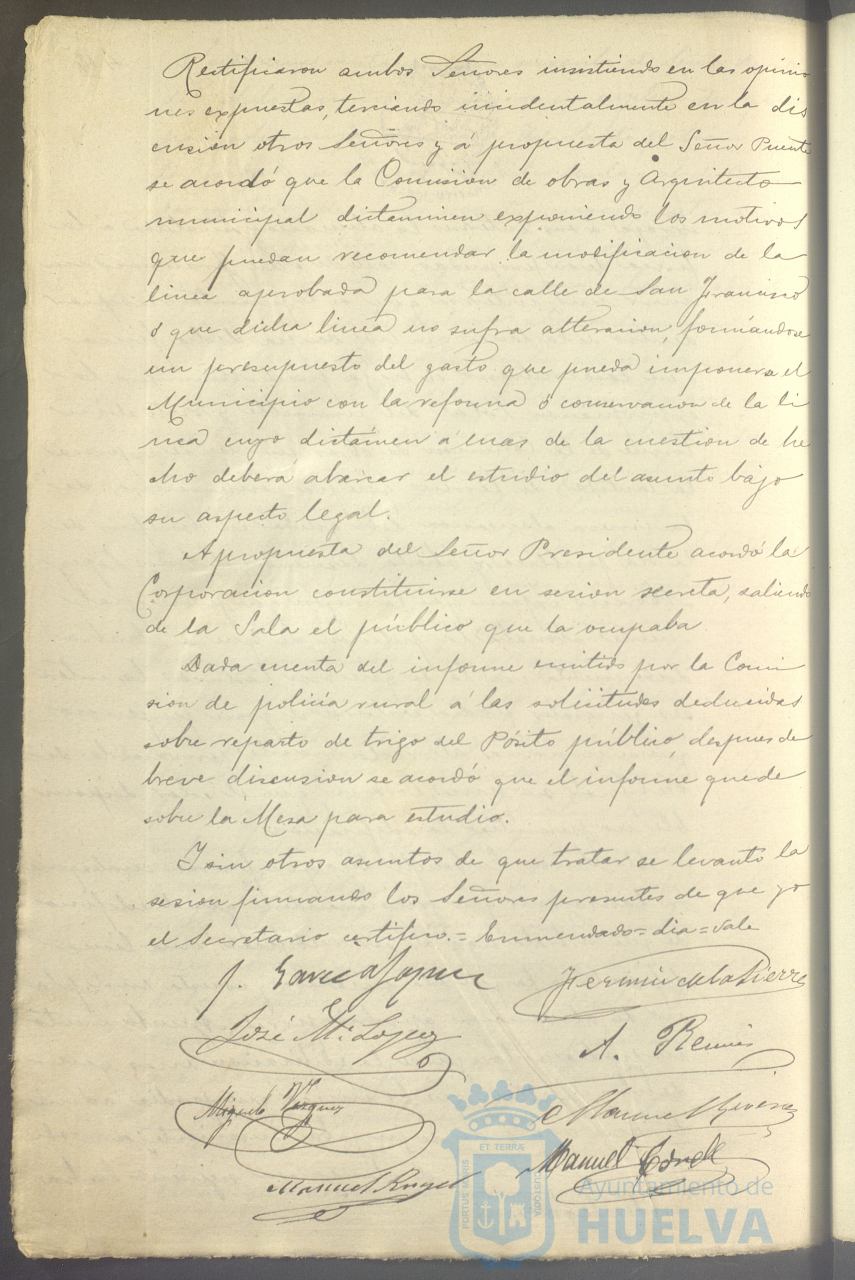 Rectificaron ambos Señores insistiendo en las opinio
nes expuestas, terciando incidentalmente en la dis
cusión otros Señores y á propuesta del Señor Puente
se acordó que la Comision de obras y Arquitecto
municipal dictaminen exponiendo los motivos
que puedan recomendar la modificacion de la
linea aprobada para la calle de San Francisco
ó que dicha linea no sufra alteracion, formándose
un presupuesto del gasto que pueda imponerse el
Municipio con la reforma ó conservacion de la li
nea cuyo dictámen á mas de la cuestion de he
cho deberá abarcar el estudio del asunto bajo
su aspecto legal.
A propuesta del Señor Presidente acordó la
Corporacion constituirse en sesion secreta, saliendo
de la Sala el público que la ocupaba
Dada cuenta del informe emitido por la Comi
sion de policía rural á las solicitudes deducidas
sobre reparto de trigo del Pósito público, despues de
breve discusion se acordó que el informe quede
sobre la Mesa para estudio.
Y sin otros asuntos de que tratar se levantó la
sesion firmando los Señores presentes de que yo
el Secretario certifico.= Enmendado= dia= vale
J. García López
Fermín de la Sierra
José Mª López
A.
Miguel Vázquez
Manuel
Manuel
Manuel
ET TERRAE
PORTUS MARIS
CUSTODIA
Ayuntamiento de
HUELVA